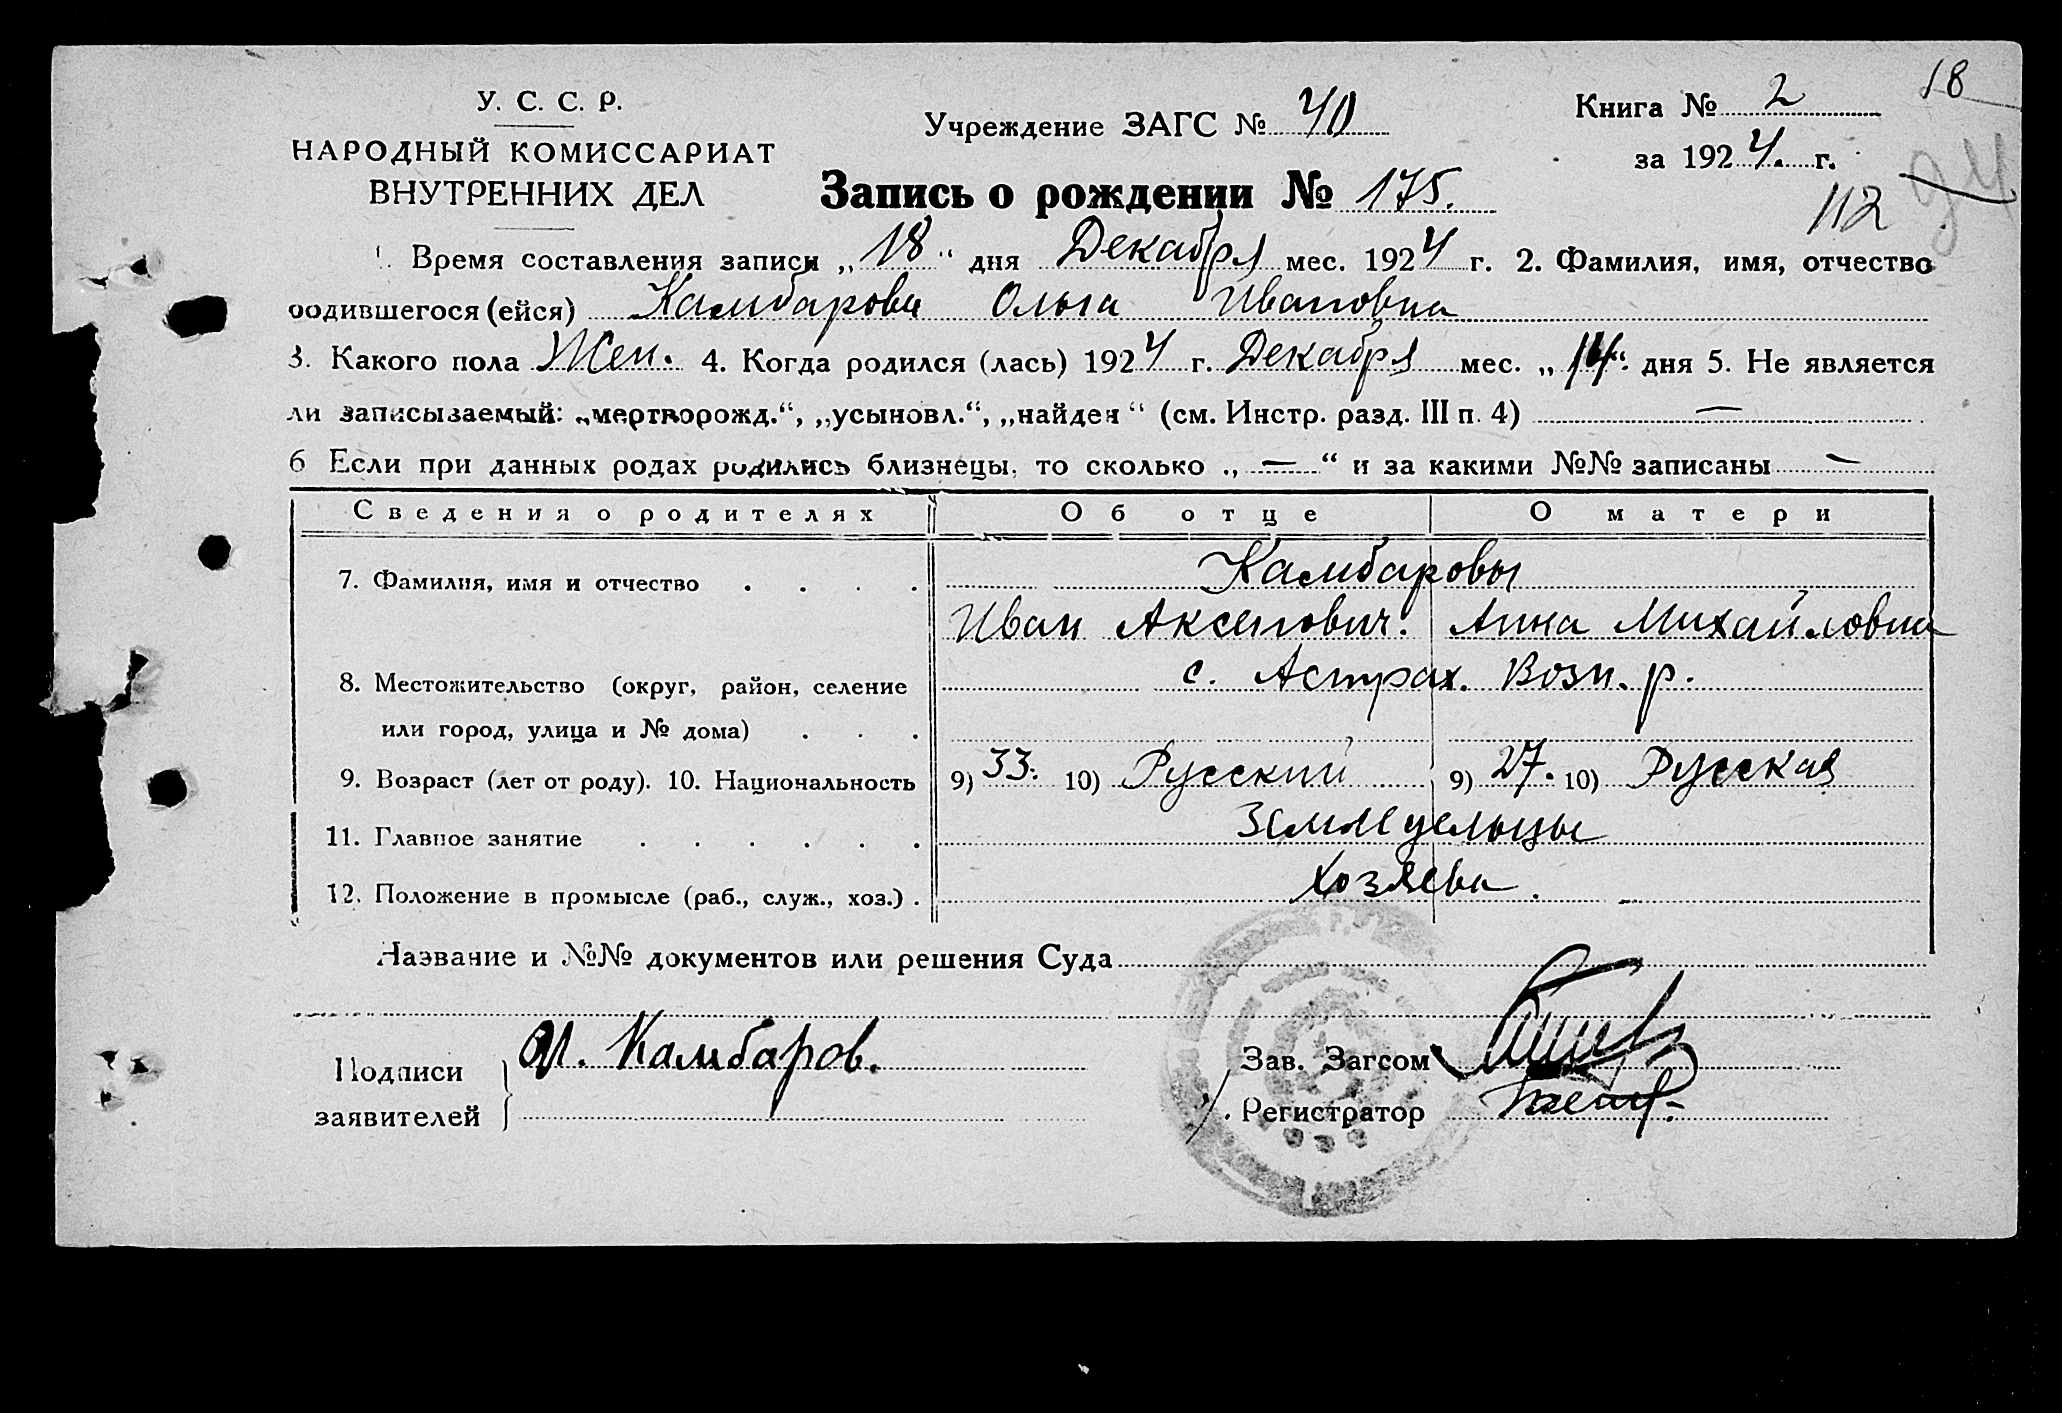 18
У. С. С. Р.
НАРОДНЫЙ КОМИССАРИАТ
ВНУТРЕННИХ ДЕЛ
Учреждение ЗАГС № 40
Книга № 2
за 1924. г.
112
Запись о рождении № 175.
1. Время составления записи „18“ дня Декабря мес. 1924 г. 2. Фамилия, имя, отчество
родившегося (ейся) Камбарова Ольга Ивановна
3. Какого пола Жен. 4. Когда родился (лась) 1924 г. Декабря мес. „14“. дня 5. Не является
ли записываемый: „мертворожд.“, „усыновл.“, „найден“ (см. Инстр. разд. III п. 4) —
6 Если при данных родах родились близнецы, то сколько „—“ и за какими №№ записаны —
Сведения о родителях Об отце О матери
7. Фамилия, имя и отчество . . . . Камбаровы
Иван Аксенович. Анна Михайловна
8. Местожительство (округ, район, селение с. Астрах. Возн. р.
или город, улица и № дома) . . .
9. Возраст (лет от роду). 10. Национальность 9) 33. 10) Русский 9) 27. 10) Русская
11. Главное занятие . . . . . . Земледельцы
12. Положение в промысле (раб., служ., хоз.) . Хозяева.
Название и №№ документов или решения Суда
Подписи
заявителей
И. Камбаров.
Зав. Загсом
Регистратор